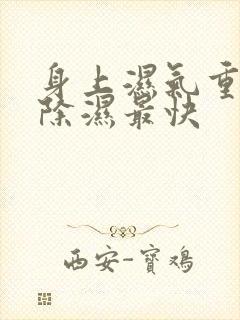 身上濕氣重
除濕最快
西安-寶鴉